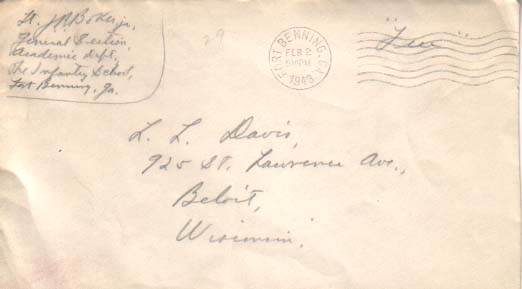 Lt. J.R. Boker Jr.
General Section,
Academic Dept.,
The Infantry School,
Fort Benning, Ga.
29
FORT BENNING, GA.
FEB 2
5 PM
1943
"Free"
L. L. Davis,
925 St. Lawrence Ave.,
Beloit,
Wisconsin.